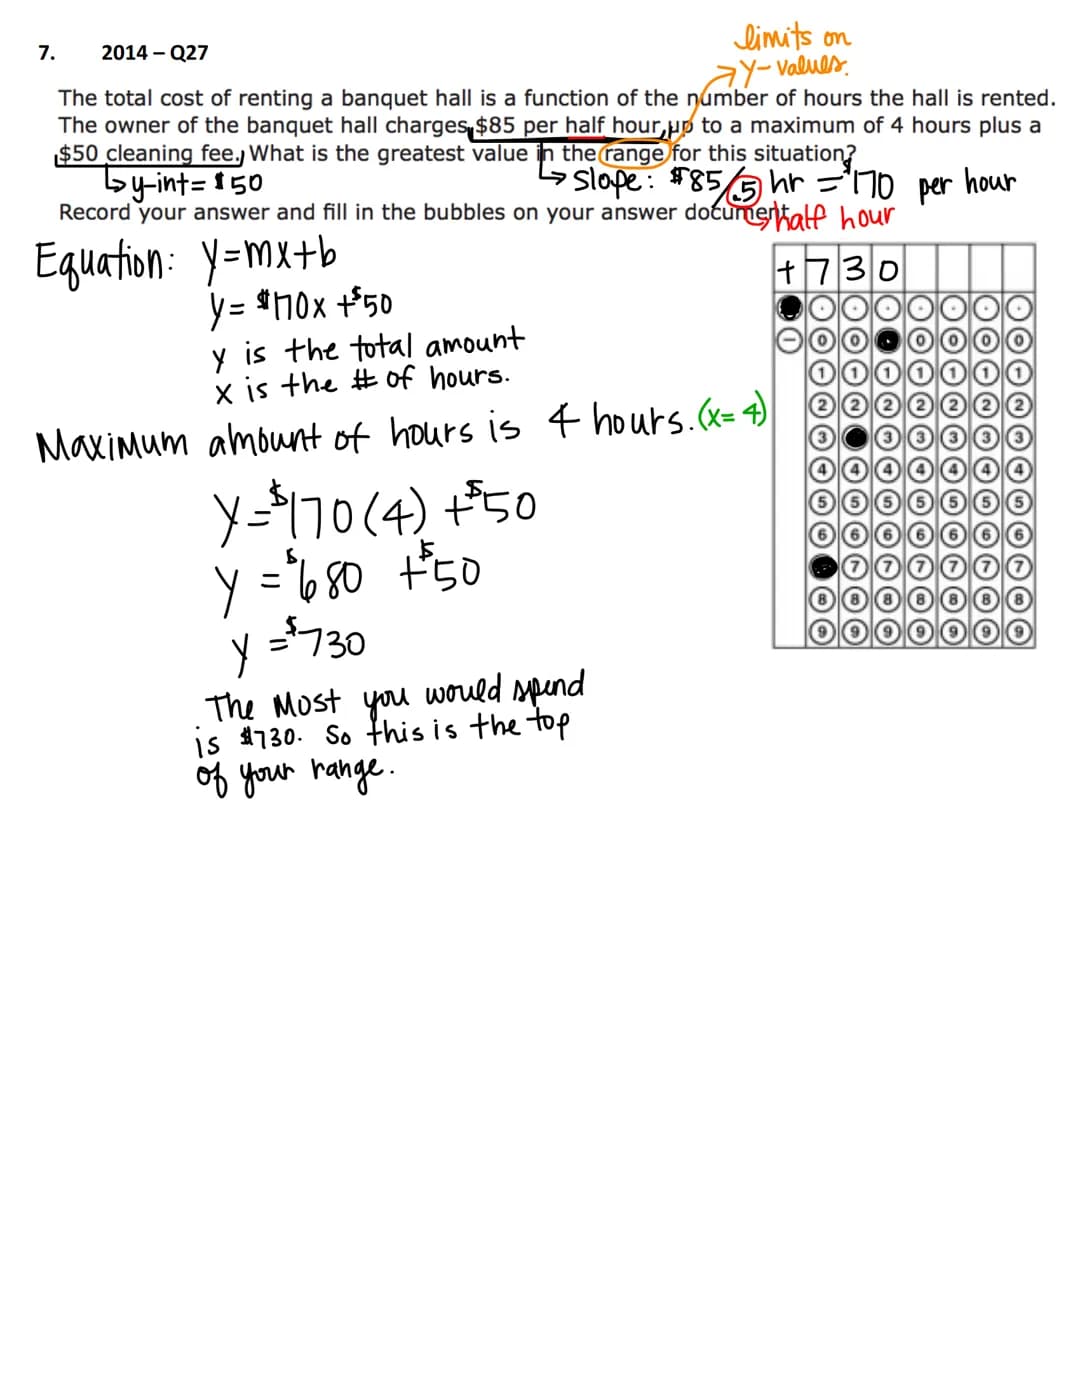 limits on
y-values.
7. 2014 – Q27
The total cost of renting a banquet hall is a function of the number of hours the hall is rented.
The owner of the banquet hall charges $85 per half hour up to a maximum of 4 hours plus a
$50 cleaning fee. What is the greatest value in the range for this situation?
y-int= $50
slope: $85/.5 hr = $170 per hour
Record your answer and fill in the bubbles on your answer document.
half hour
Equation: y=mx+b
y= $170x +$50
y is the total amount
x is the # of hours.
Maximum amount of hours is 4 hours. (x=4)
y=$170(4) +$50
y =$680 +$50
y =$730
The Most you would spend
is $730. So this is the top
of your range.
+730
. . . . . . .
− 0 0 0 0 0 0
1 1 1 1 1 1 1
2 2 2 2 2 2 2
3 3 3 3 3 3
4 4 4 4 4 4 4
5 5 5 5 5 5 5
6 6 6 6 6 6 6
7 7 7 7 7 7
8 8 8 8 8 8 8
9 9 9 9 9 9 9